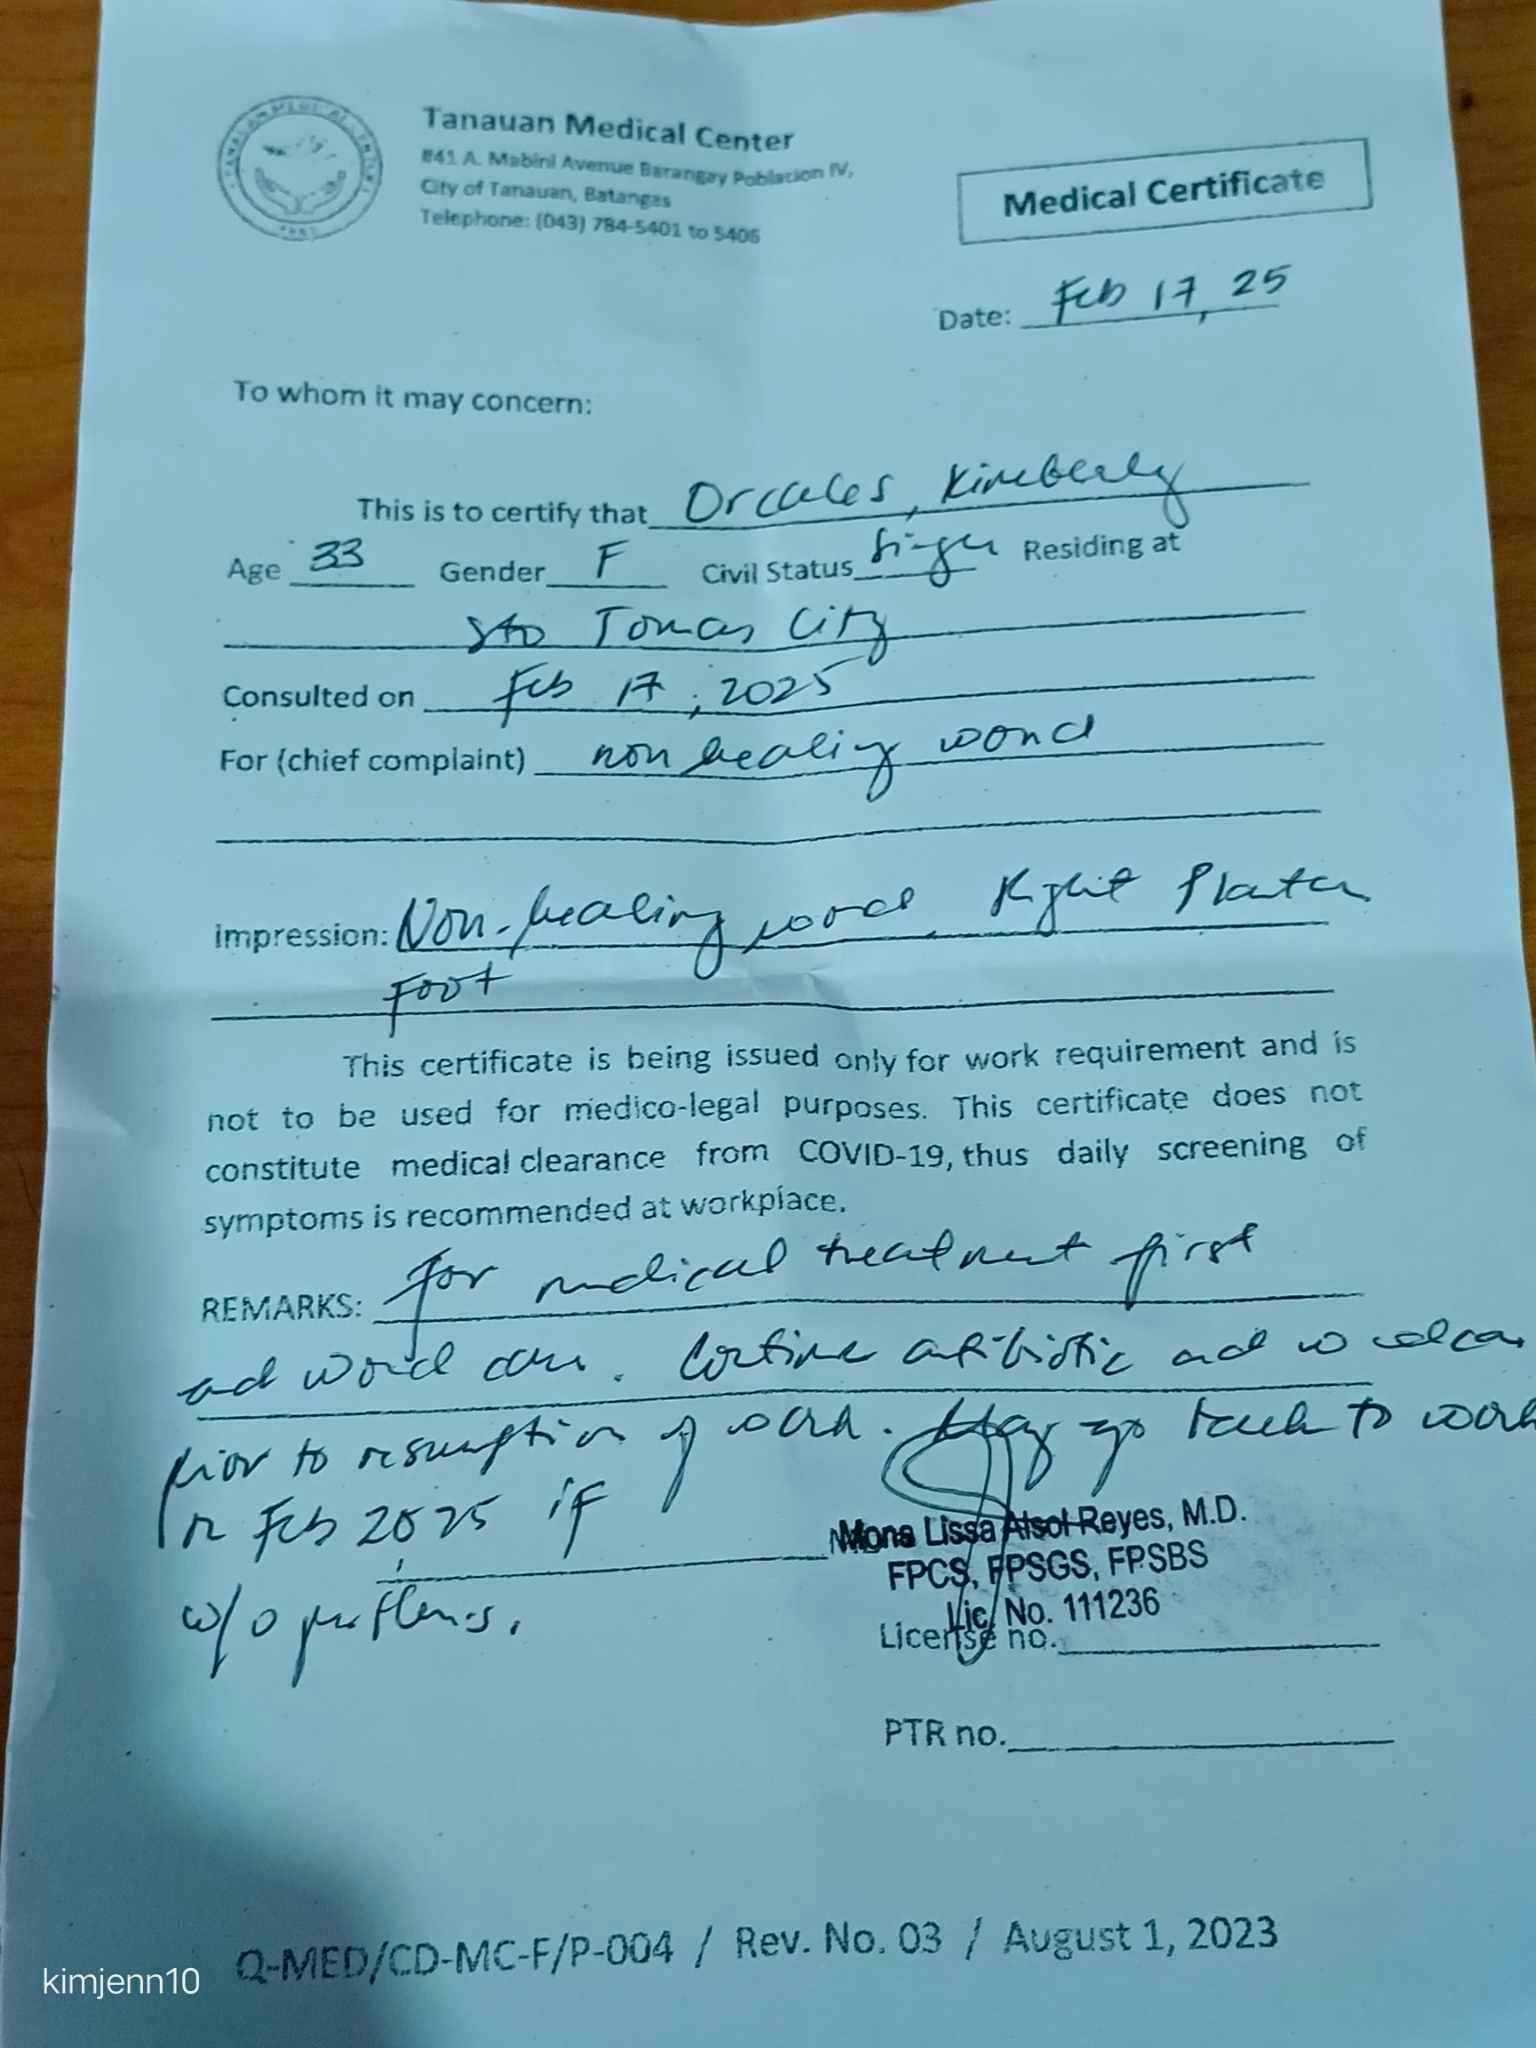 TANAUAN MEDICAL CENTER
Tanauan Medical Center
#41 A. Mabini Avenue Barangay Poblacion IV,
City of Tanauan, Batangas
Telephone: (043) 784-5401 to 5406
Medical Certificate
Date: Feb 17, 25
To whom it may concern:
This is to certify that Orcales, Kimberly
Age 33 Gender F Civil Status Single Residing at
Sto Tomas City
Consulted on Feb 17, 2025
For (chief complaint) non healing wond
Impression: Non-healing wond Right Plantar
Foot
This certificate is being issued only for work requirement and is
not to be used for medico-legal purposes. This certificate does not
constitute medical clearance from COVID-19, thus daily screening of
symptoms is recommended at workplace.
REMARKS: for medical treatment first
and wond care. Continue antibiotic and wond care
prior to resumption of work. May go back to work
on Feb 2025 if
w/o problems.
Mona Lissa Alsol-Reyes, M.D.
FPCS, FPSGS, FPSBS
Lic. No. 111236
License no.
PTR no.
Q-MED/CD-MC-F/P-004 / Rev. No. 03 / August 1, 2023
kimjenn10